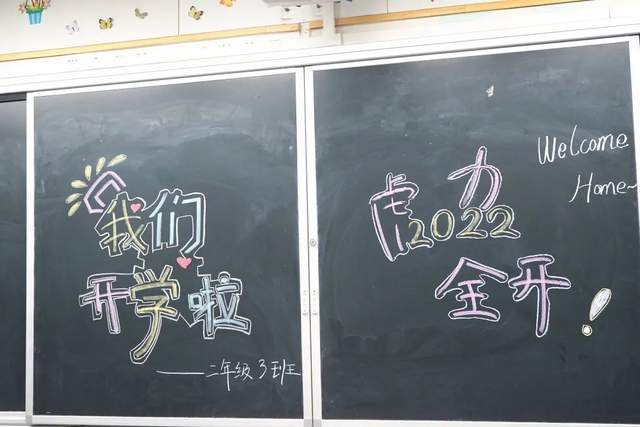 我们
开学啦
——二年级3班
虎力
2022
全开!
Welcome
Home~